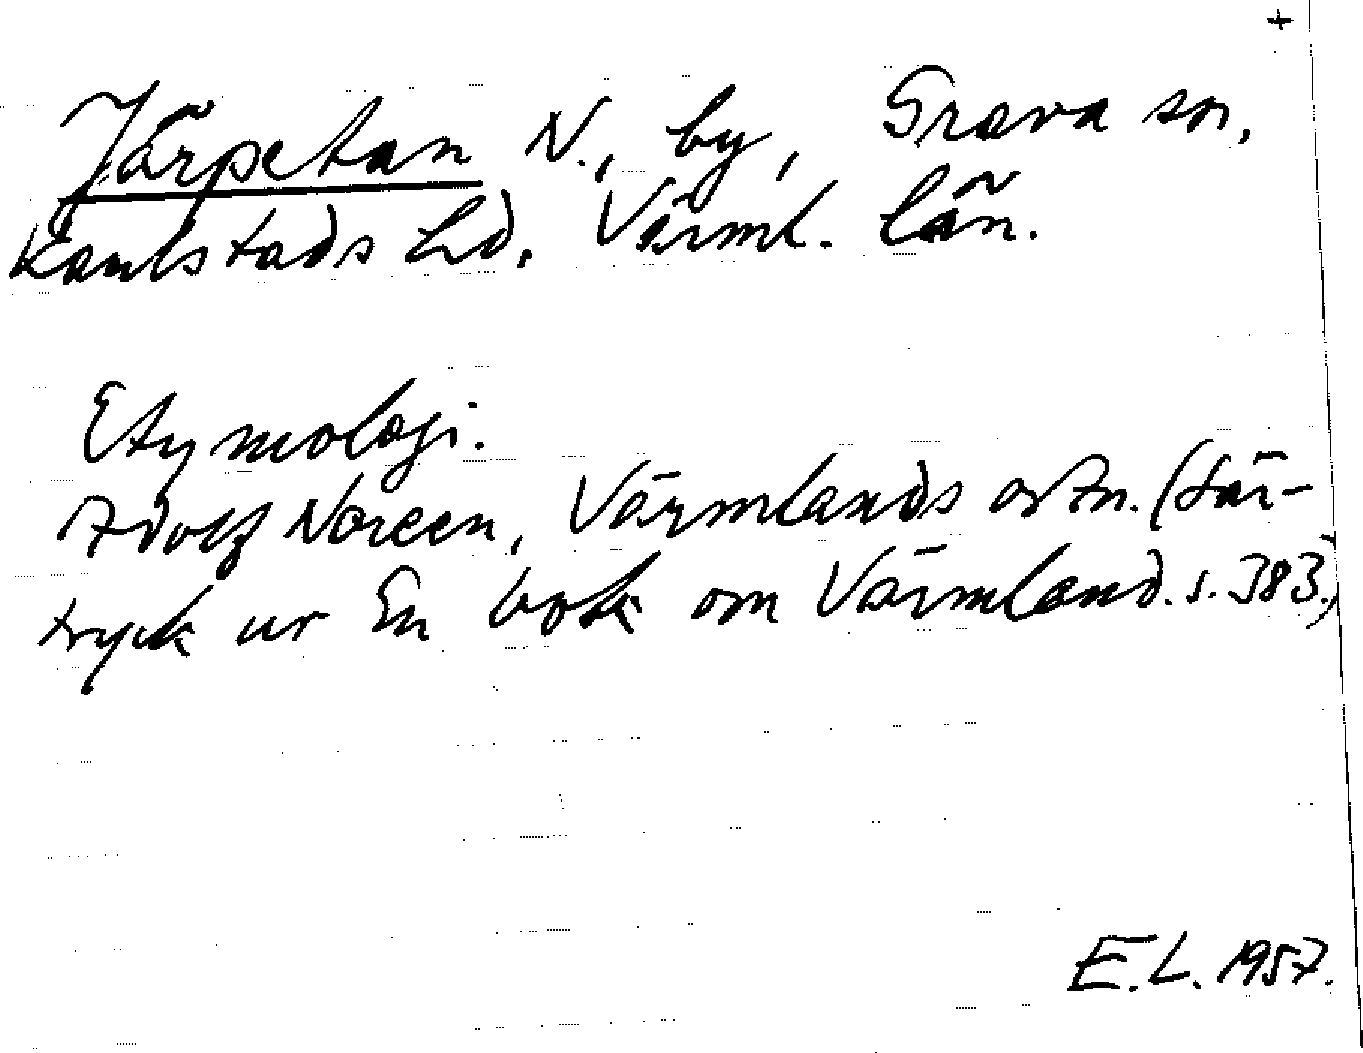 +
Järpetan N., by, Grava sn,
Karlstads hd, Värml. län.
Etymologi.
Adolf Noreen, Värmlands ortn. (Sär-
tryck ur En bok om Värmland. s. 383.)
E.L. 1957.